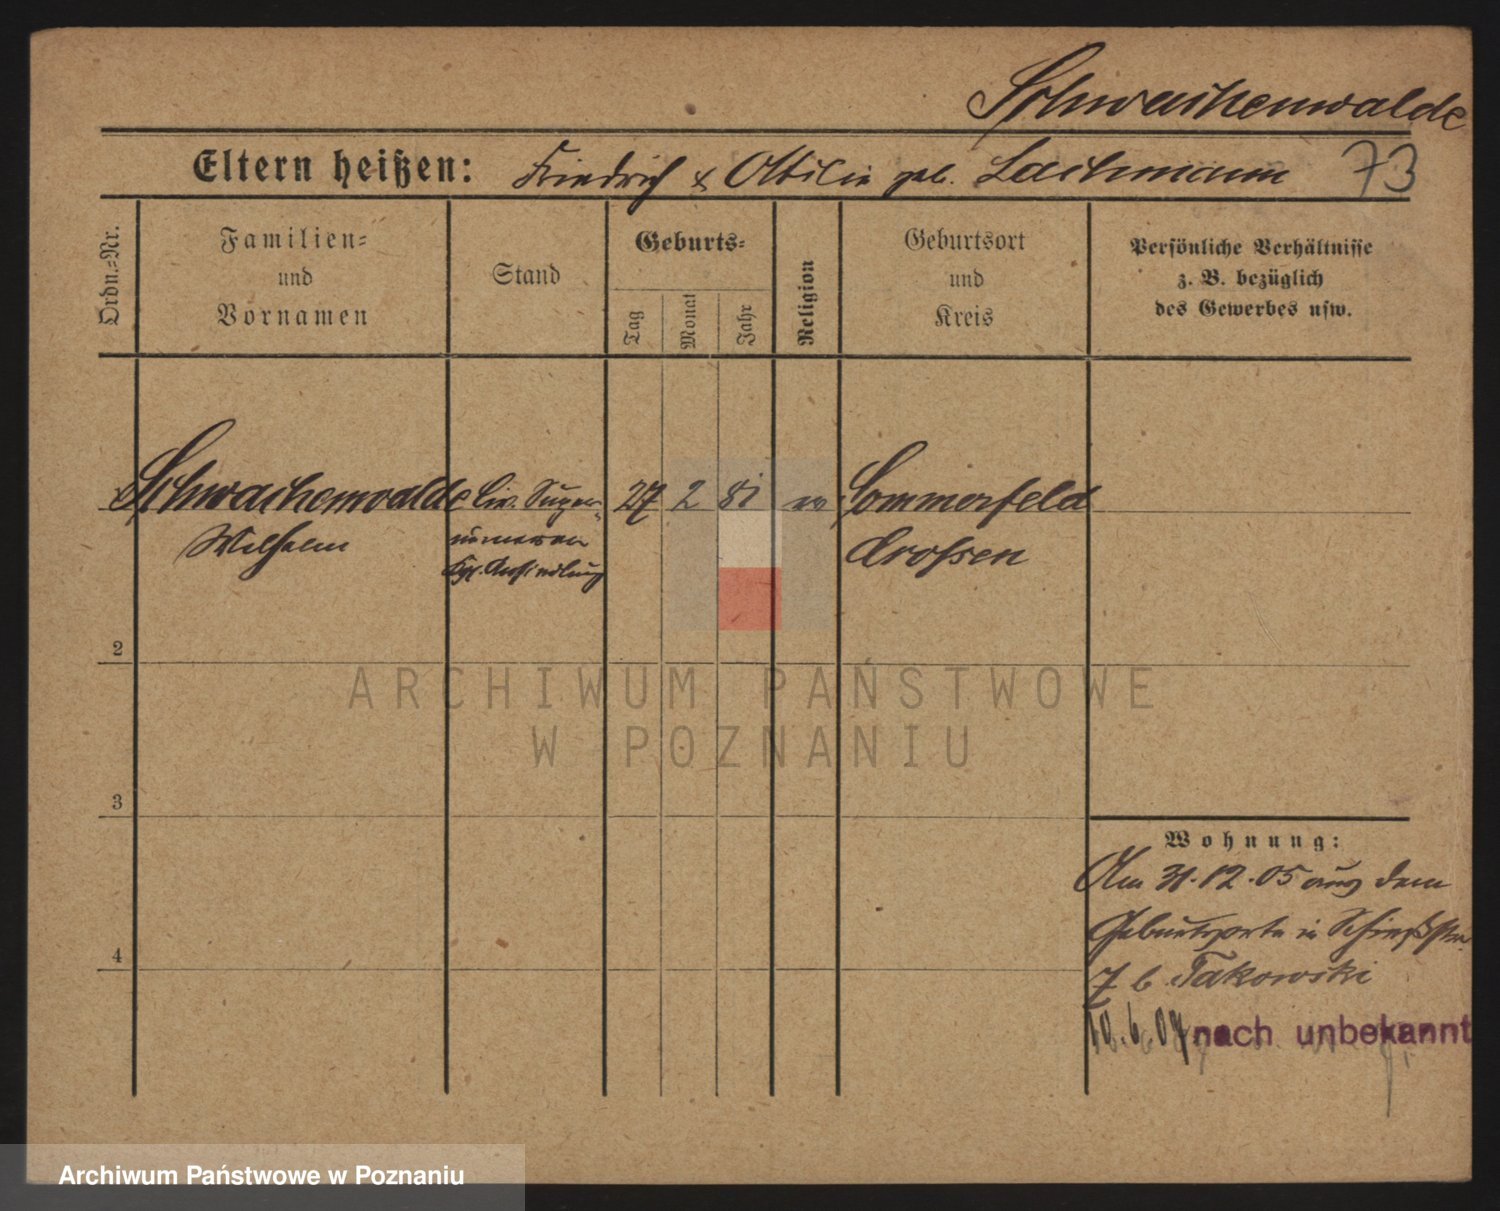 Schwachenwalde
Eltern heißen: Friedrich & Ottilie geb. Lachmann 73
Ordn.-Nr.
Familien-
und
Vornamen
Stand
Geburts-
Tag
Monat
Jahr
Religion
Geburtsort
und
Kreis
Persönliche Verhältnisse
z. B. bezüglich
des Gewerbes usw.
Schwachenwalde Civ. Super- 27 2 81 ev Sommerfeld
Wilhelm numerar Crossen
Kgl. Ansiedlung
2
3
4
Wohnung:
Am 31.12.05 aus dem
Geburtsorte in Schießstr.
7 b. Takowski
10.6.07 nach unbekannt
ARCHIWUM PAŃSTWOWE
W POZNANIU
Archiwum Państwowe w Poznaniu